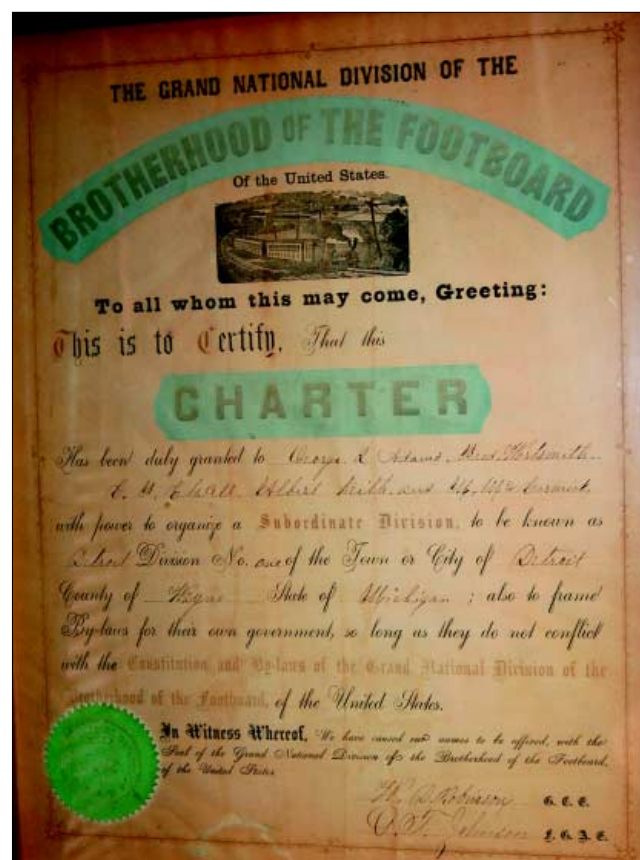 THE GRAND NATIONAL DIVISION OF THE
BROTHERHOOD OF THE FOOTBOARD
Of the United States.
To all whom this may come, Greeting:
This is to Certify, That this
CHARTER
Has been duly granted to George Adams
Albert Keith and
with power to organize a Subordinate Division, to be known as
Detroit Division No. one of the Town or City of Detroit
County of Wayne State of Michigan ; also to frame
By-laws for their own government, so long as they do not conflict
with the Constitution and By-laws of the Grand National Division of the
Brotherhood of the Footboard, of the United States.
In Witness Whereof, We have caused our names to be affixed, with the
Seal of the Grand National Division of the Brotherhood of the Footboard,
of the United States
Robinson G. C. E.
Johnson F. G. A. E.